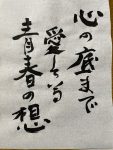 心の底まで
愛しる
青春の想